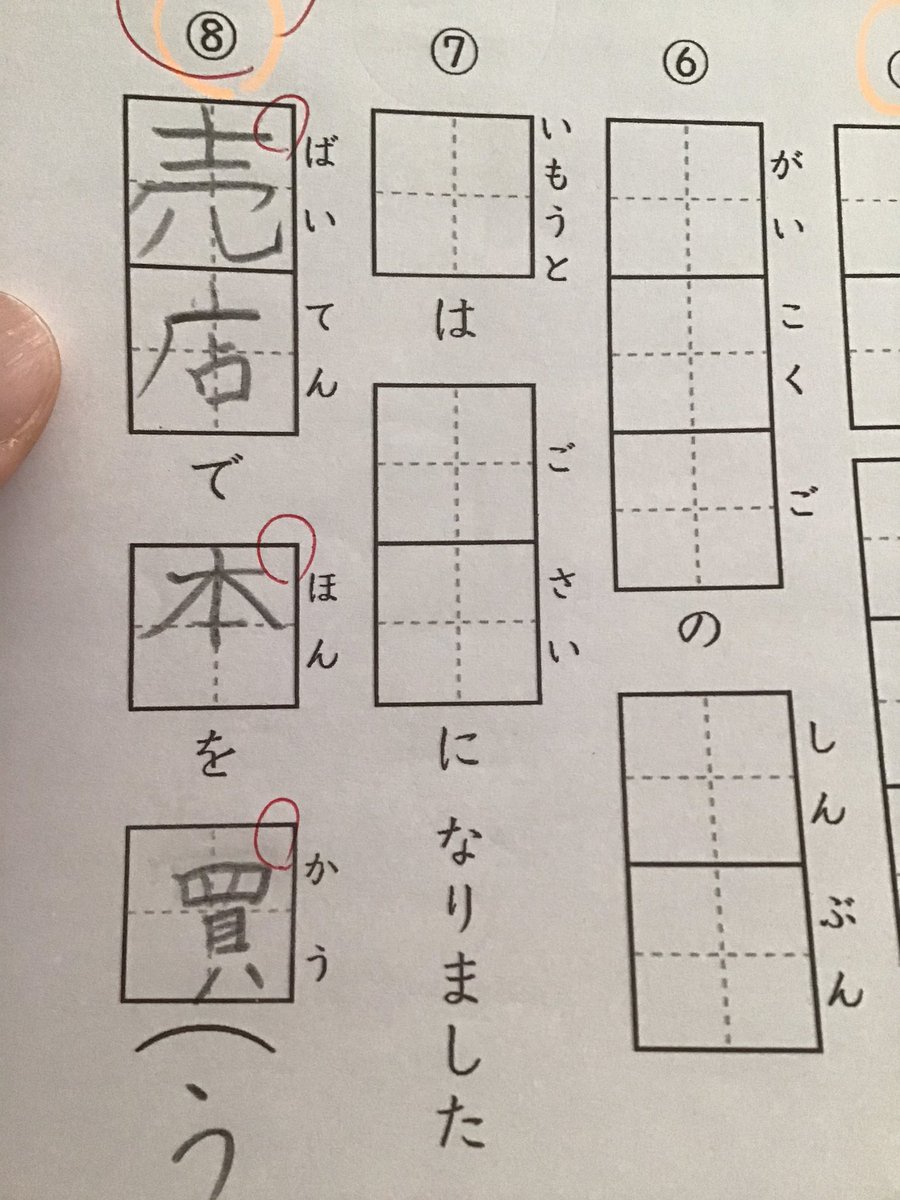 ⑥
がいこくご
の
しんぶん
⑦
いもうと
は
ごさい
になりました
⑧
ばいてん
売店で
ほん
本を
かう
買(う